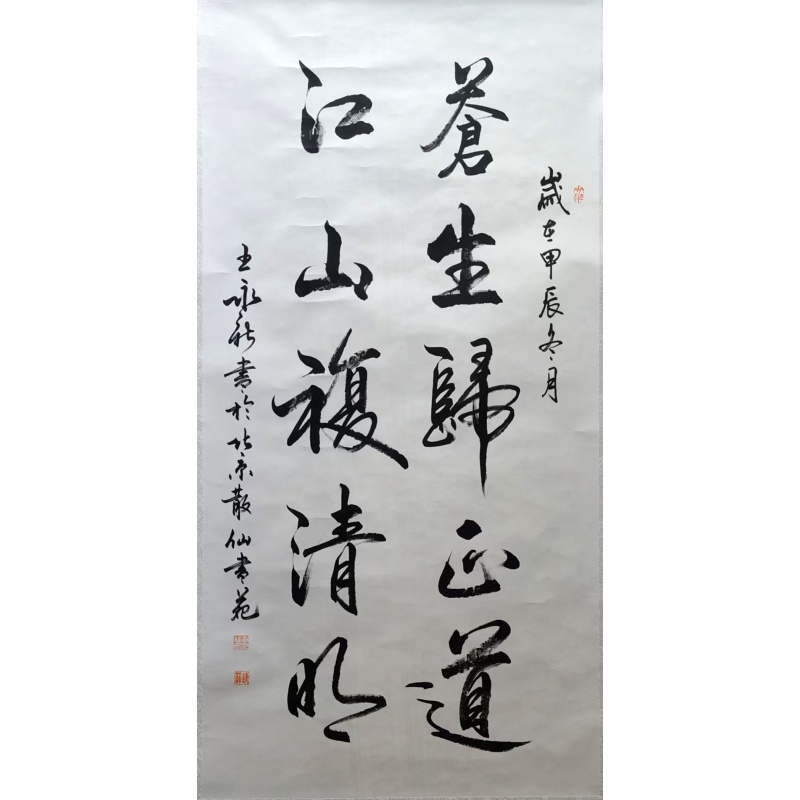 歲在甲辰冬月
蒼生歸正道
江山複清明
王詠新書於北京散仙書苑